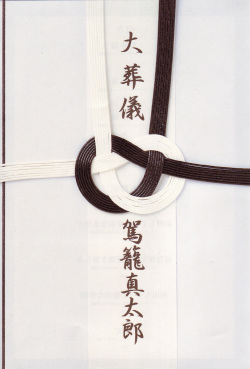 大葬儀
駕籠真太郎